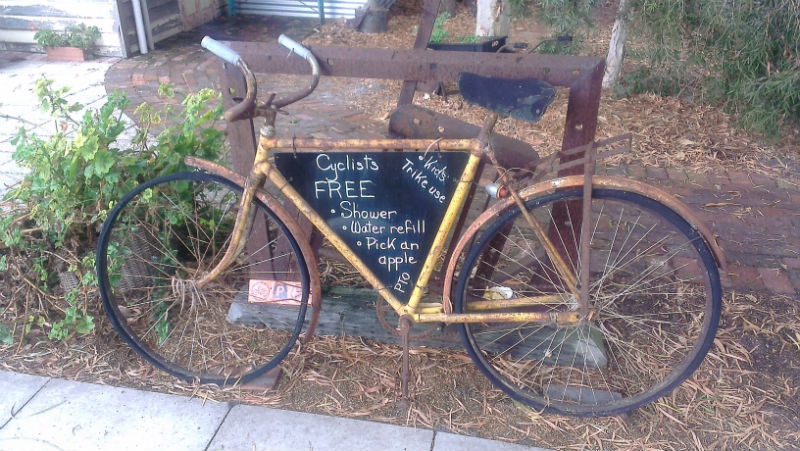 Cyclists
FREE
• Shower
• Water refill
• Pick an
apple
• Kids
Trike use
PTO